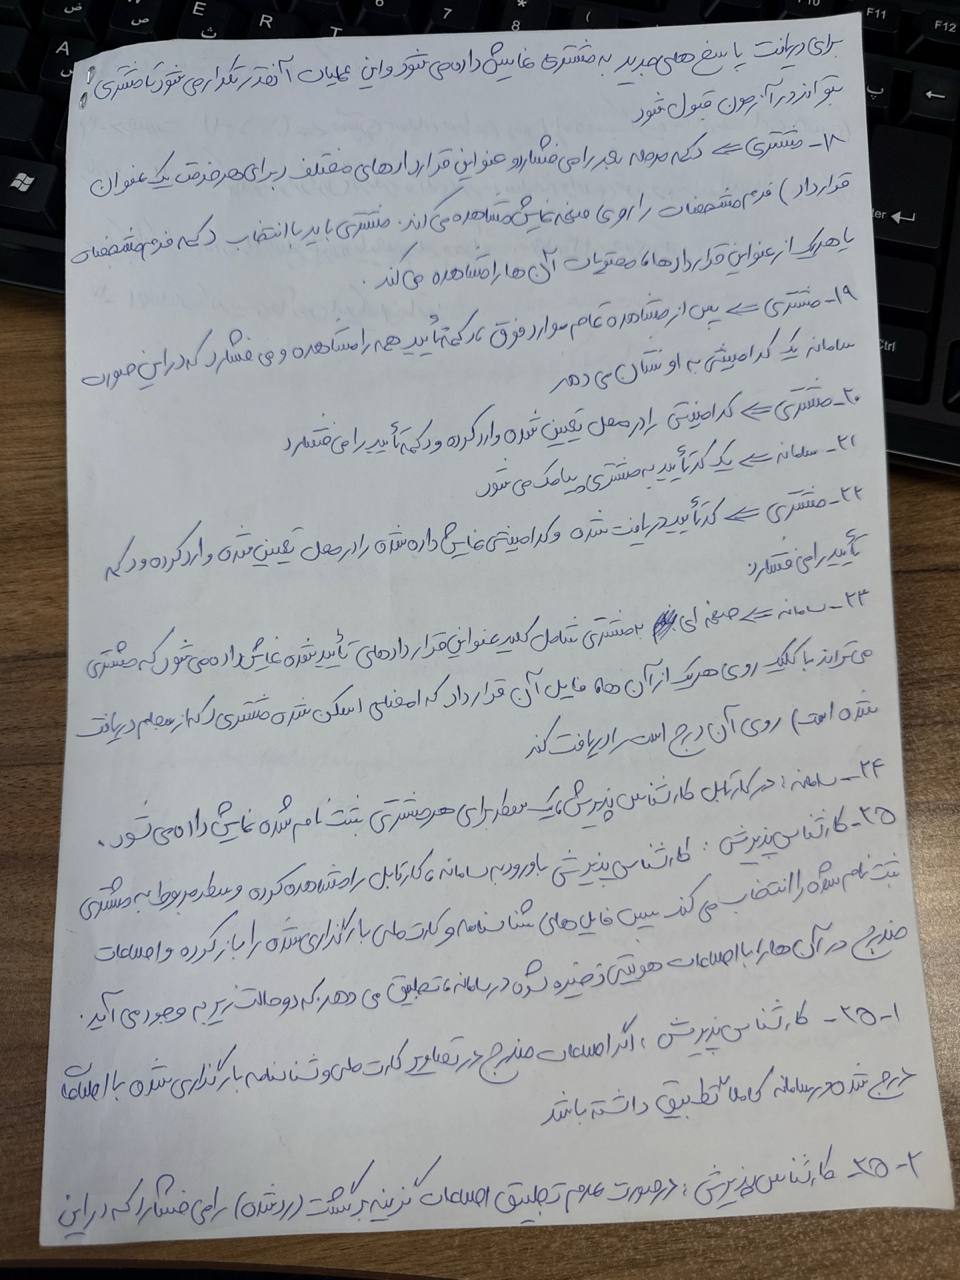 برای دریافت پاسخ های جدید به مشتری نمایش داده می شود و این عملیات آنقدر تکرار می شود تا مشتری
بتواند در آزمون قبول شود
۱۸- مشتری ⇐ دکمه مرحله بعد را می فشارد و عنواین قراردادهای مختلف (برای هر خدمت یک عنوان
قرارداد) فرم مشخصات را روی صفحه نمایش مشاهده می کند. مشتری باید با انتخاب دکمه فرم مشخصات
یا هریک از عنواین قراردادها، محتویات آن ها را مشاهده می کند.
۱۹- مشتری ⇐ پس از مشاهده تمام موارد فوق، دکمه تأیید همه را مشاهده و می فشارد که در این صورت
سامانه یک کد امنیتی به او نشان می دهد
۲۰- مشتری ⇐ کد امنیتی را در محل تعیین شده وارد کرده و دکمه تأیید را می فشارد
۲۱- سامانه ⇐ یک کد تأیید به مشتری پیامک می شود
۲۲- مشتری ⇐ کد تأیید دریافت شده و کد امنیتی نمایش داده شده را در محل تعیین شده وارد کرده و دکمه
تأیید را می فشارد
۲۳- سامانه ⇐ صفحه ای به مشتری شامل کلید عنواین قراردادهای تأیید شده نمایش داده می شود که مشتری
می تواند با کلیک روی هریک از آن ها، فایل آن قرارداد که امضای اسکن شده مشتری (که از سجام دریافت
شده است) روی آن درج است را دریافت کند
۲۴- سامانه: در کارتابل کارشناس پذیرش، یک سطر برای هر مشتری ثبت نام شده نمایش داده می شود.
۲۵- کارشناس پذیرش: کارشناس پذیرش با ورود به سامانه، کارتابل را مشاهده کرده و سطر مربوط به مشتری
ثبت نام شده را انتخاب می کند سپس فایل های شناسنامه و کارت ملی بارگذاری شده را باز کرده و اطلاعات
مندرج در آن ها را با اطلاعات هویتی ذخیره شده در سامانه، تطبیق می دهد. که دو حالت زیر به وجود می آید.
۲۵-۱- کارشناس پذیرش: اگر اطلاعات مندرج در تصاویر کارت ملی و شناسنامه بارگذاری شده با اطلاعات
درج شده در سامانه کاملا تطبیق داشته باشد
۲۵-۲ کارشناس پذیرش: در صورت عدم تطبیق اطلاعات گزینه برگشت (رد شده) را می فشارد که در این